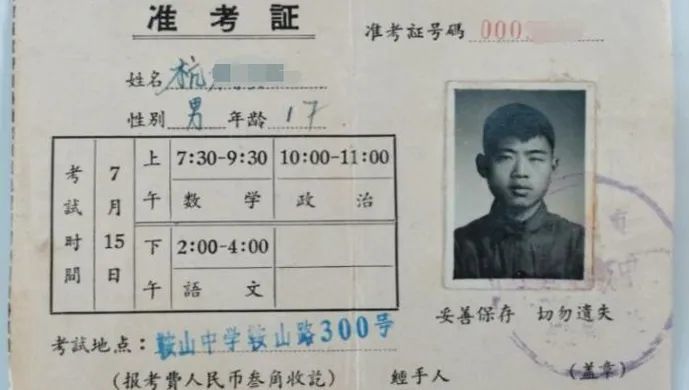 准考証
准考証号碼 000
姓名 杭
性别 男 年龄 17
考試时間
7月15日
上午
7:30-9:30 10:00-11:00
数学 政治
下午
2:00-4:00
語文
妥善保存 切勿遺失
考試地点：鞍山中学鞍山路300号
(报考費人民币叁角收訖) 經手人 (蓋章)